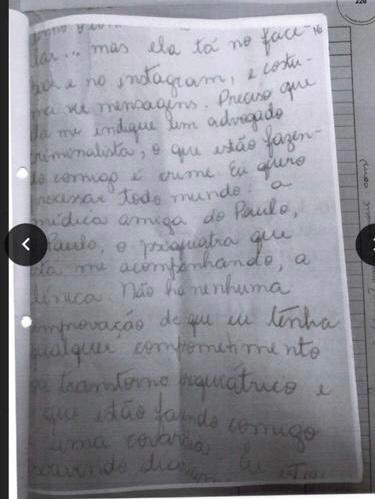 226
lar... mas ela tá no face-
e no instagram, e costu-
ma ver mensagens. Preciso que
me indique um advogado
criminalista, o que estão fazen-
do comigo é crime. Eu quero
processar todo mundo: a
médica amiga do Paulo,
Paulo, o psiquiatra que
me acompanhando, a
clínica. Não há nenhuma
comprovação de que eu tenha
qualquer comprometimento
transtorno psiquiátrico e
que estão fazendo comigo
uma covardia.
Eu